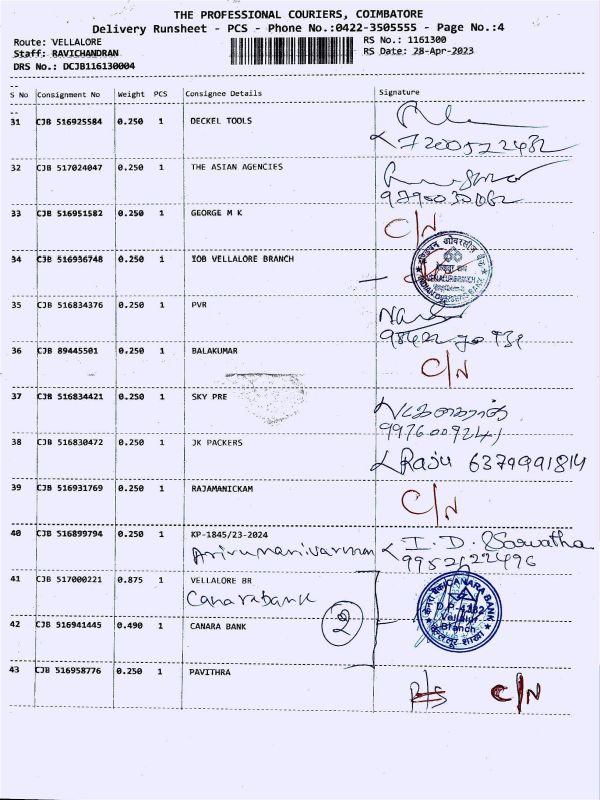 THE PROFESSIONAL COURIERS, COIMBATORE
Delivery Runsheet - PCS - Phone No.:0422-3505555 - Page No.:4
Route: VELLALORE RS No.: 1161300
Staff: RAVICHANDRAN RS Date: 28-Apr-2023
DRS No.: DCJB116130004
S No Consignment No Weight PCS Consignee Details Signature
31 CJB 516925584 0.250 1 DECKEL TOOLS
7200522432
32 CJB 517024047 0.250 1 THE ASIAN AGENCIES
33 CJB 516951582 0.250 1 GEORGE M K C/N
34 CJB 516936748 0.250 1 IOB VELLALORE BRANCH
VELLALUR BRANCH
INDIAN OVERSEAS BANK
35 CJB 516834376 0.250 1 PVR
36 CJB 89445501 0.250 1 BALAKUMAR C/N
37 CJB 516834421 0.250 1 SKY PRE
9976009241
38 CJB 516830472 0.250 1 JK PACKERS Raju 6379991814
39 CJB 516931769 0.250 1 RAJAMANICKAM C/N
40 CJB 516899794 0.250 1 KP-1845/23-2024 I.D. Sarwatha
Arivumanivannan 9952522496
41 CJB 517000221 0.875 1 VELLALORE BR
Canarabank
केनरा बैंक CANARA BANK
D.P-4182
Vellalur
Branch
42 CJB 516941445 0.490 1 CANARA BANK 2
43 CJB 516958776 0.250 1 PAVITHRA R/S C/N